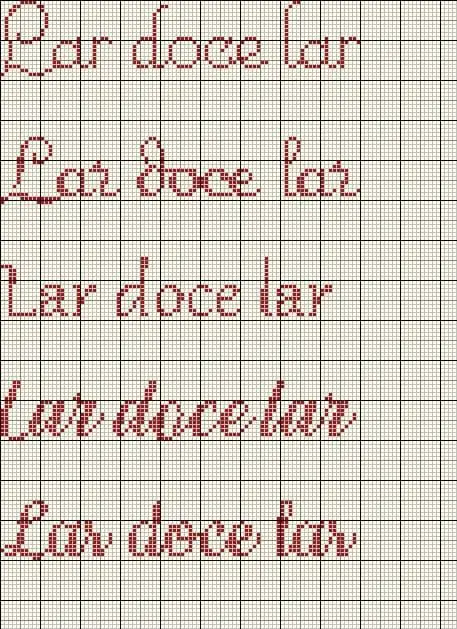 Lar doce lar
Lar doce lar
Lar doce lar
Lar doce lar
Lar doce lar